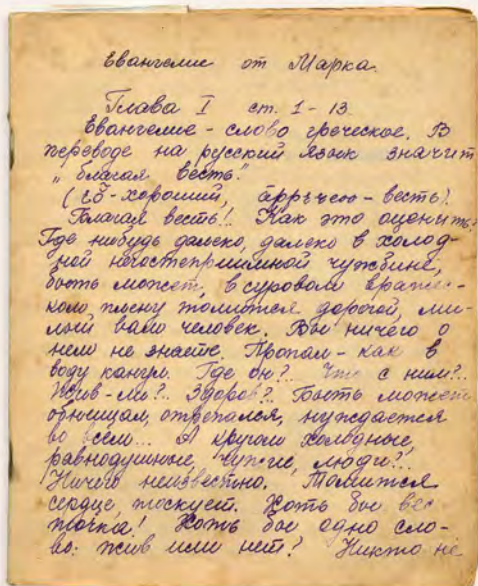 Евангелие от Марка.
Глава I ст. 1-13
Евангелие - слово греческое. В
переводе на русский язык значит
„благая весть."
(εὖ-хороший, - весть).
Благая весть!. Как это оценить?
Где нибудь далеко, далеко в холод-
ной негостеприимной чужбине,
быть может, в суровом вражес-
ком плену томится дорогой, ми-
лый вам человек. Вы ничего о
нем не знаете. Пропал - как в
воду канул. Где он?.. Что с ним?..
Жив-ли?.. Здоров?.. Быть может
обнищал, отрепался, нуждается
во всем... А кругом холодные,
равнодушные, чужие, люди?..
Ничего неизвестно. Томится
сердце, тоскует. Хоть бы вес-
точка! Хоть бы одно сло-
во: жив или нет? Никто не